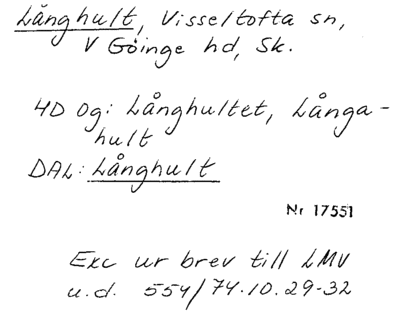 Långhult, Visseltofta sn,
V Göinge hd, Sk.
4D 0g: Långhultet, Långa-
hult
DAL: Långhult
Nr 17551
Exc ur brev till LMV
u.d. 554/74.10.29-32